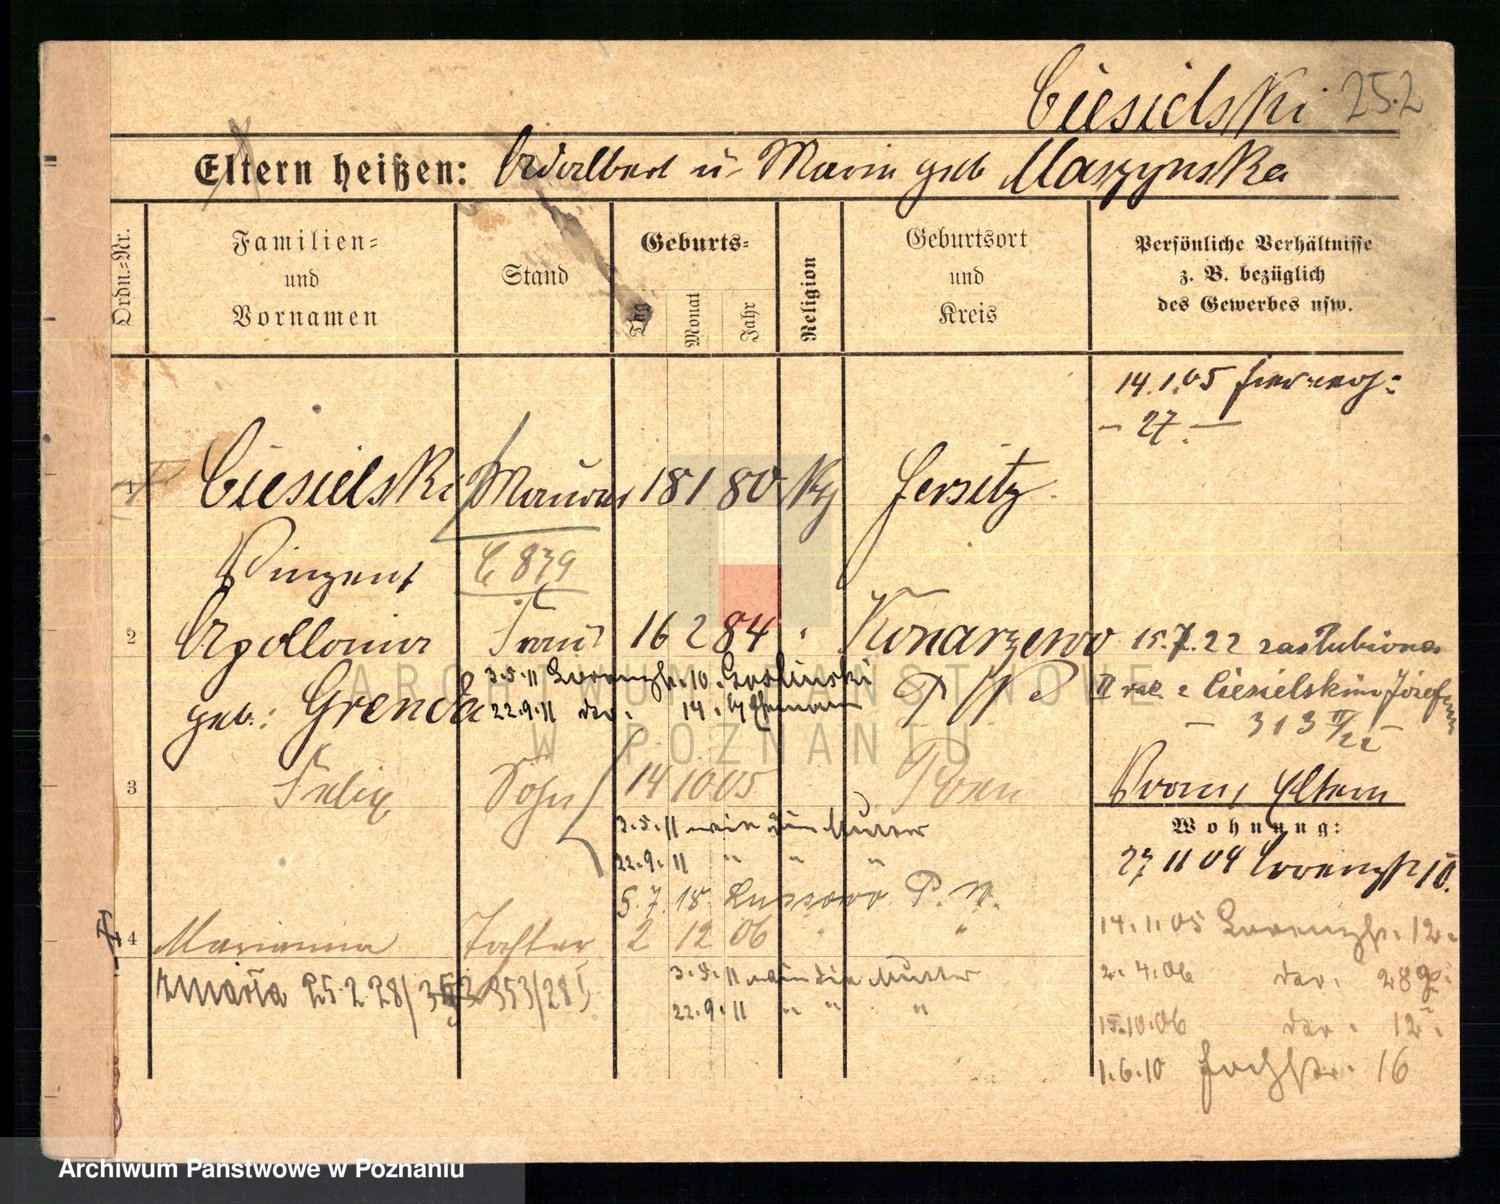 Ciesielski 252
Eltern heißen: Adalbert u Marie geb Maszynska
Ordn.=Nr.
Familien=
und
Vornamen
Stand
Geburts=
Tag
Monat
Jahr
Religion
Geburtsort
und
Kreis
Persönliche Verhältnisse
z. B. bezüglich
des Gewerbes usw.
14.1.05
– 27. –
Ciesielski Maurer 18 1 80 Kth Jersitz
Vinzent
C 879
2 Apollonia Frau 16 2 84 Konarzewo 15.7.22 zaślubiona
geb: Grenda P W
II raz z Ciesielskim Józefem
3.5.11 Lorenzstr. 10
22.9.11 der. 14
– 313 II/22 –
3 Felix Sohn 14 10 05 Posen
Prov, Eltern
3.5.11 mit der Mutter
22.9.11 " " "
5.7.18. Lussowo P. W.
Wohnung:
27 11 04 Lorenzstr 10.
4 Marianna Tochter 2 12 06 " "
14.1.05 Lorenzstr. 12.
zmarła 25.2.28/ 353/28
3.5.11 mit der Mutter
22.9.11 " " "
2.4.06 der. 28
15.10.06 der. 12
1.6.10 16
ARCHIWUM PAŃSTWOWE
W POZNANIU
Archiwum Państwowe w Poznaniu